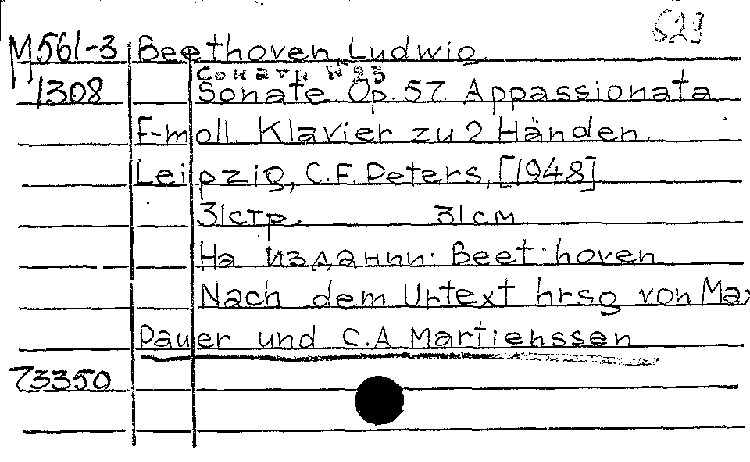 629
M561-3 Beethoven Ludwig
Сонаты №23
1308 Sonate Op. 57 Appassionata
F-moll Klavier zu 2 Händen.
Leipzig, C.F. Peters, [1948]
31стр. 31см
На издании: Beethoven
Nach dem Urtext hrsg von Max
Pauer und C.A Martienssen
73350